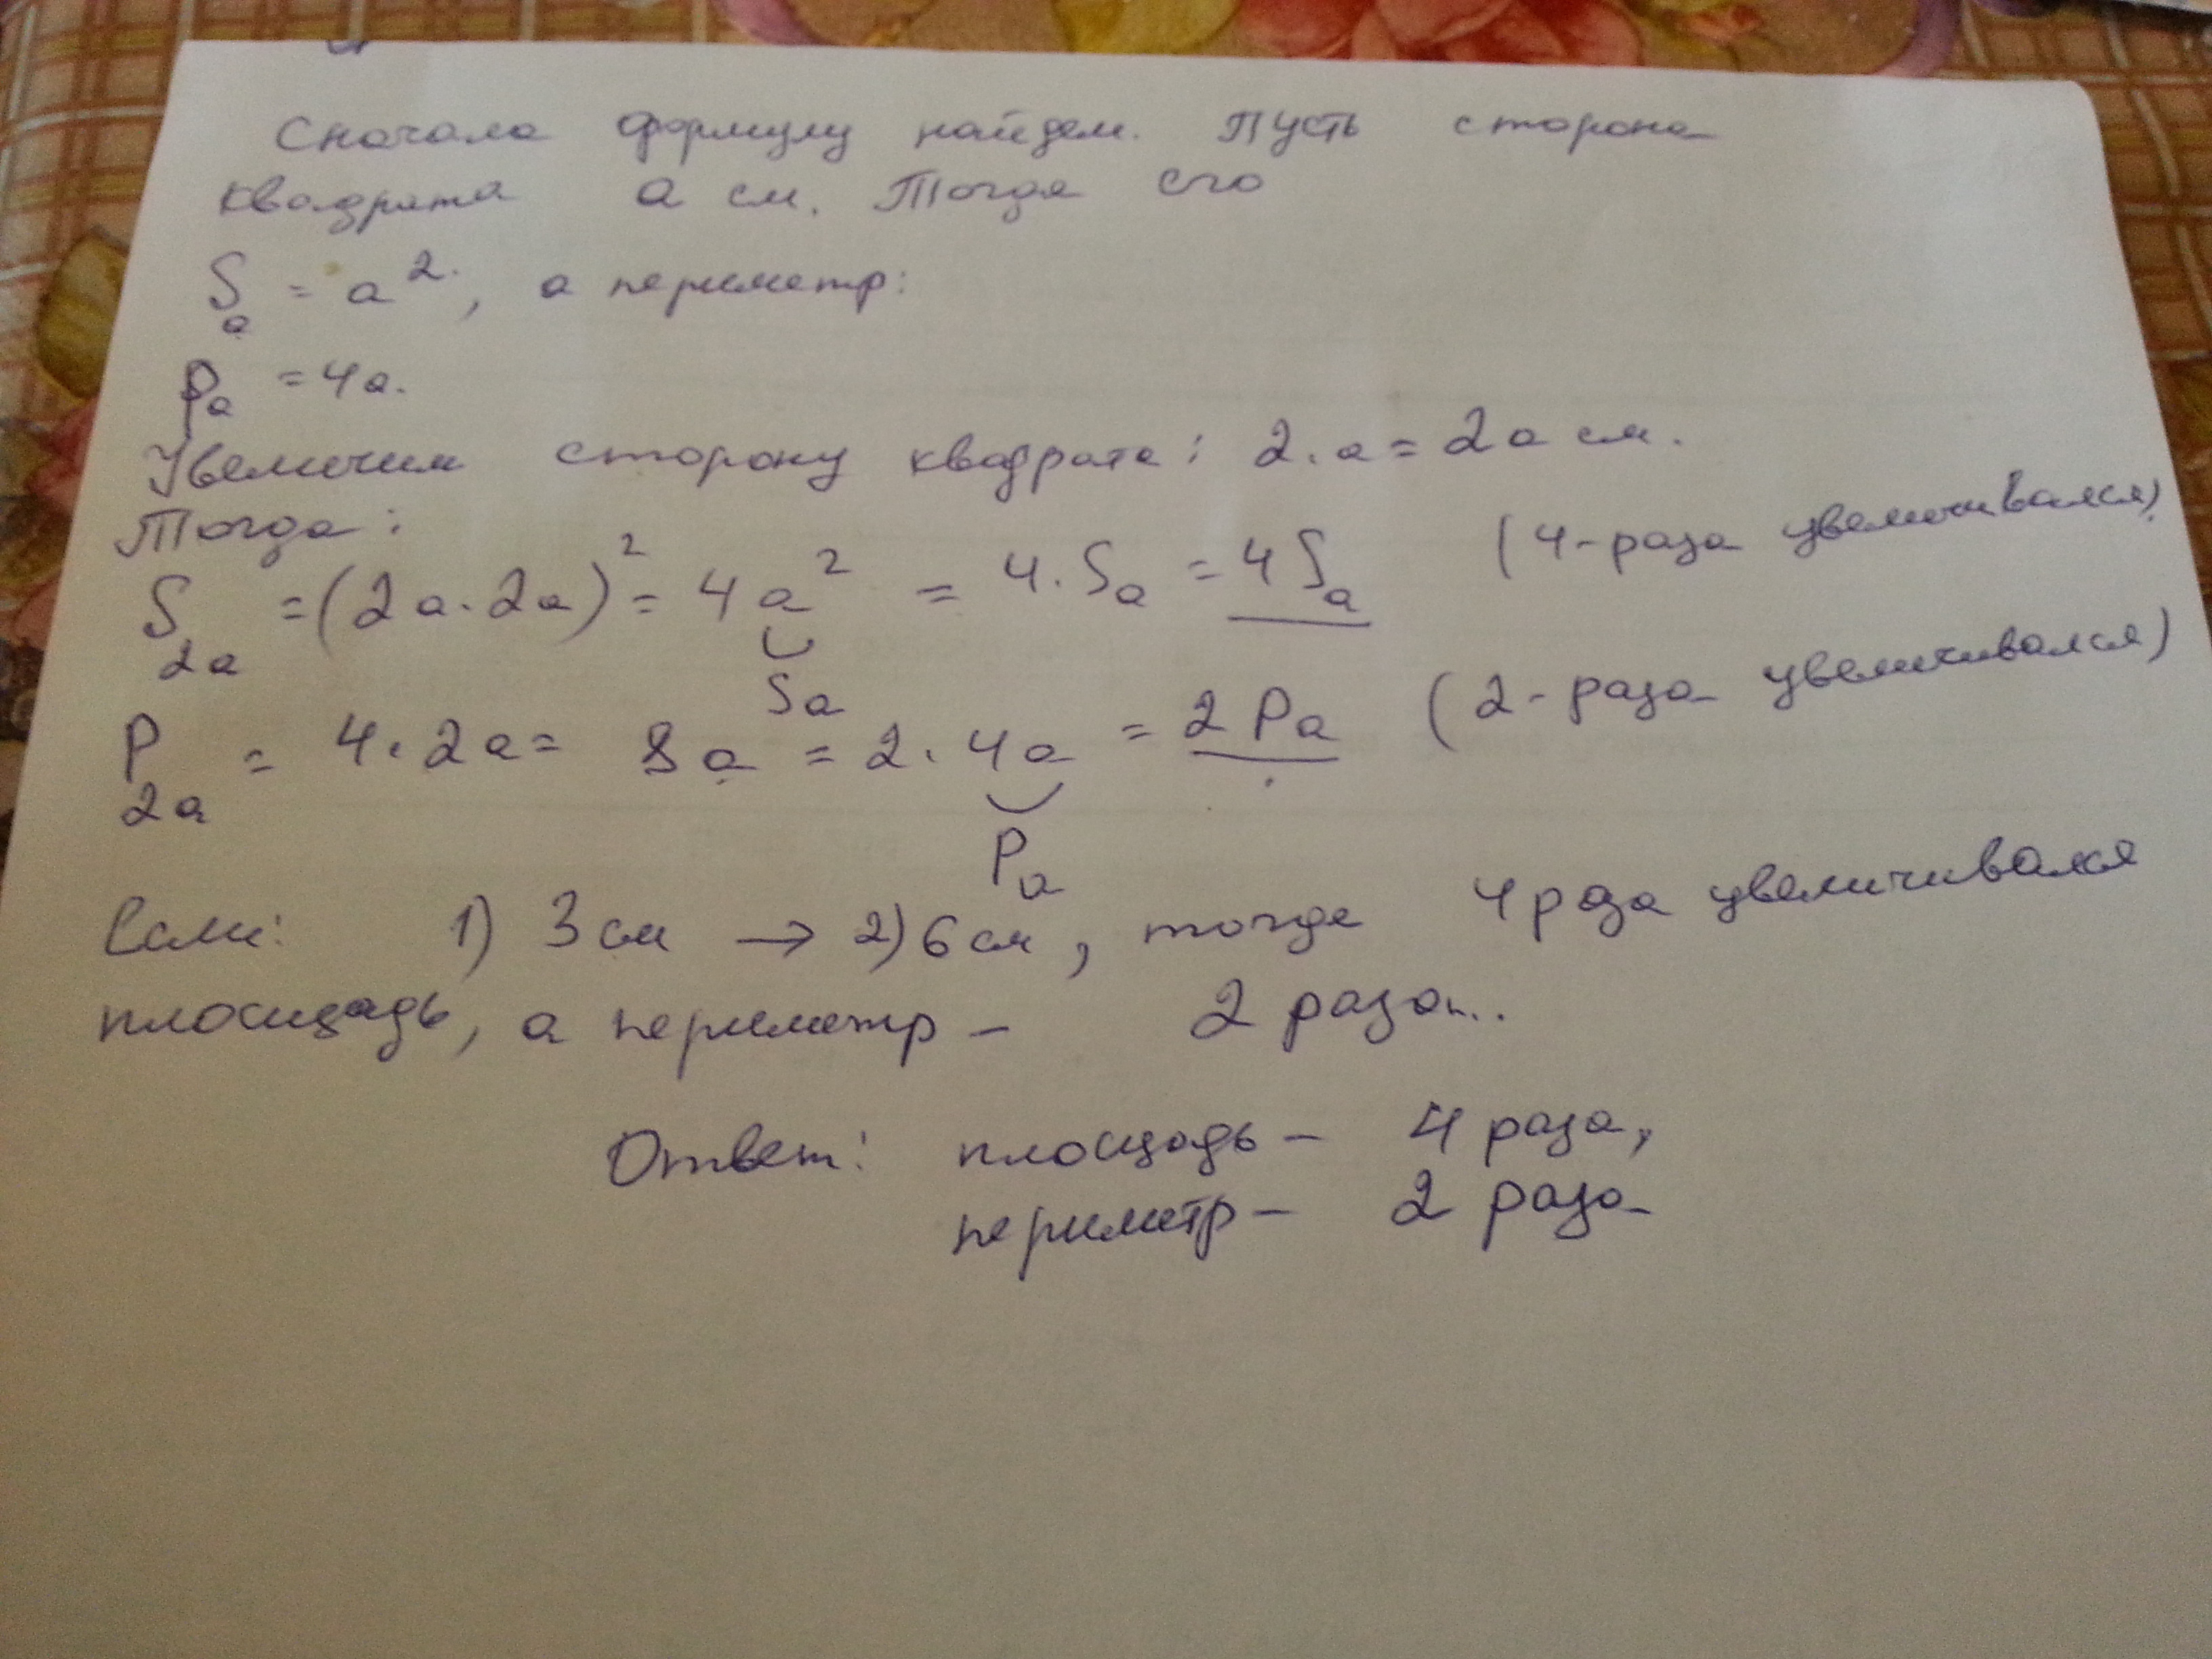 Сначала формулу найдем. Пусть сторона
квадрата a см. Тогда его
S a = a², а периметр:
P a = 4a.
Увеличим сторону квадрата: 2·a = 2a см.
Тогда:
S 2a = (2a·2a)² = 4a² = 4·S a = 4S a (4-раза увеличивался)
S a
P 2a = 4·2a = 8a = 2·4a = 2P a (2-раза увеличивался)
P a
Если: 1) 3 см → 2) 6 см, тогда 4 раза увеличивался
площадь, а периметр – 2 раза...
Ответ: площадь – 4 раза,
периметр – 2 раза